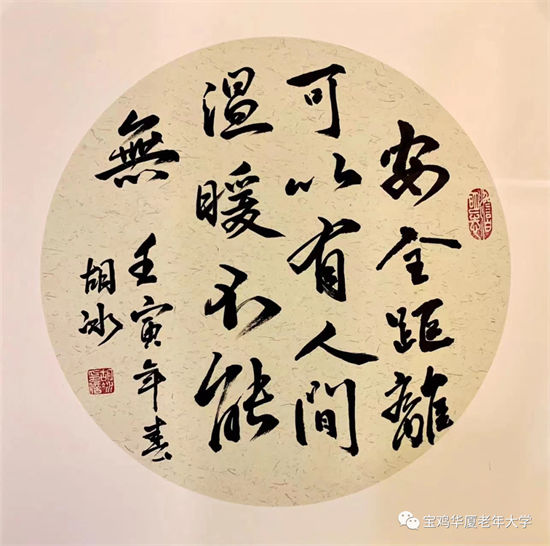 安全距離
可以有人間
温暖不能
無
壬寅年春
胡冰
宝鸡华厦老年大学